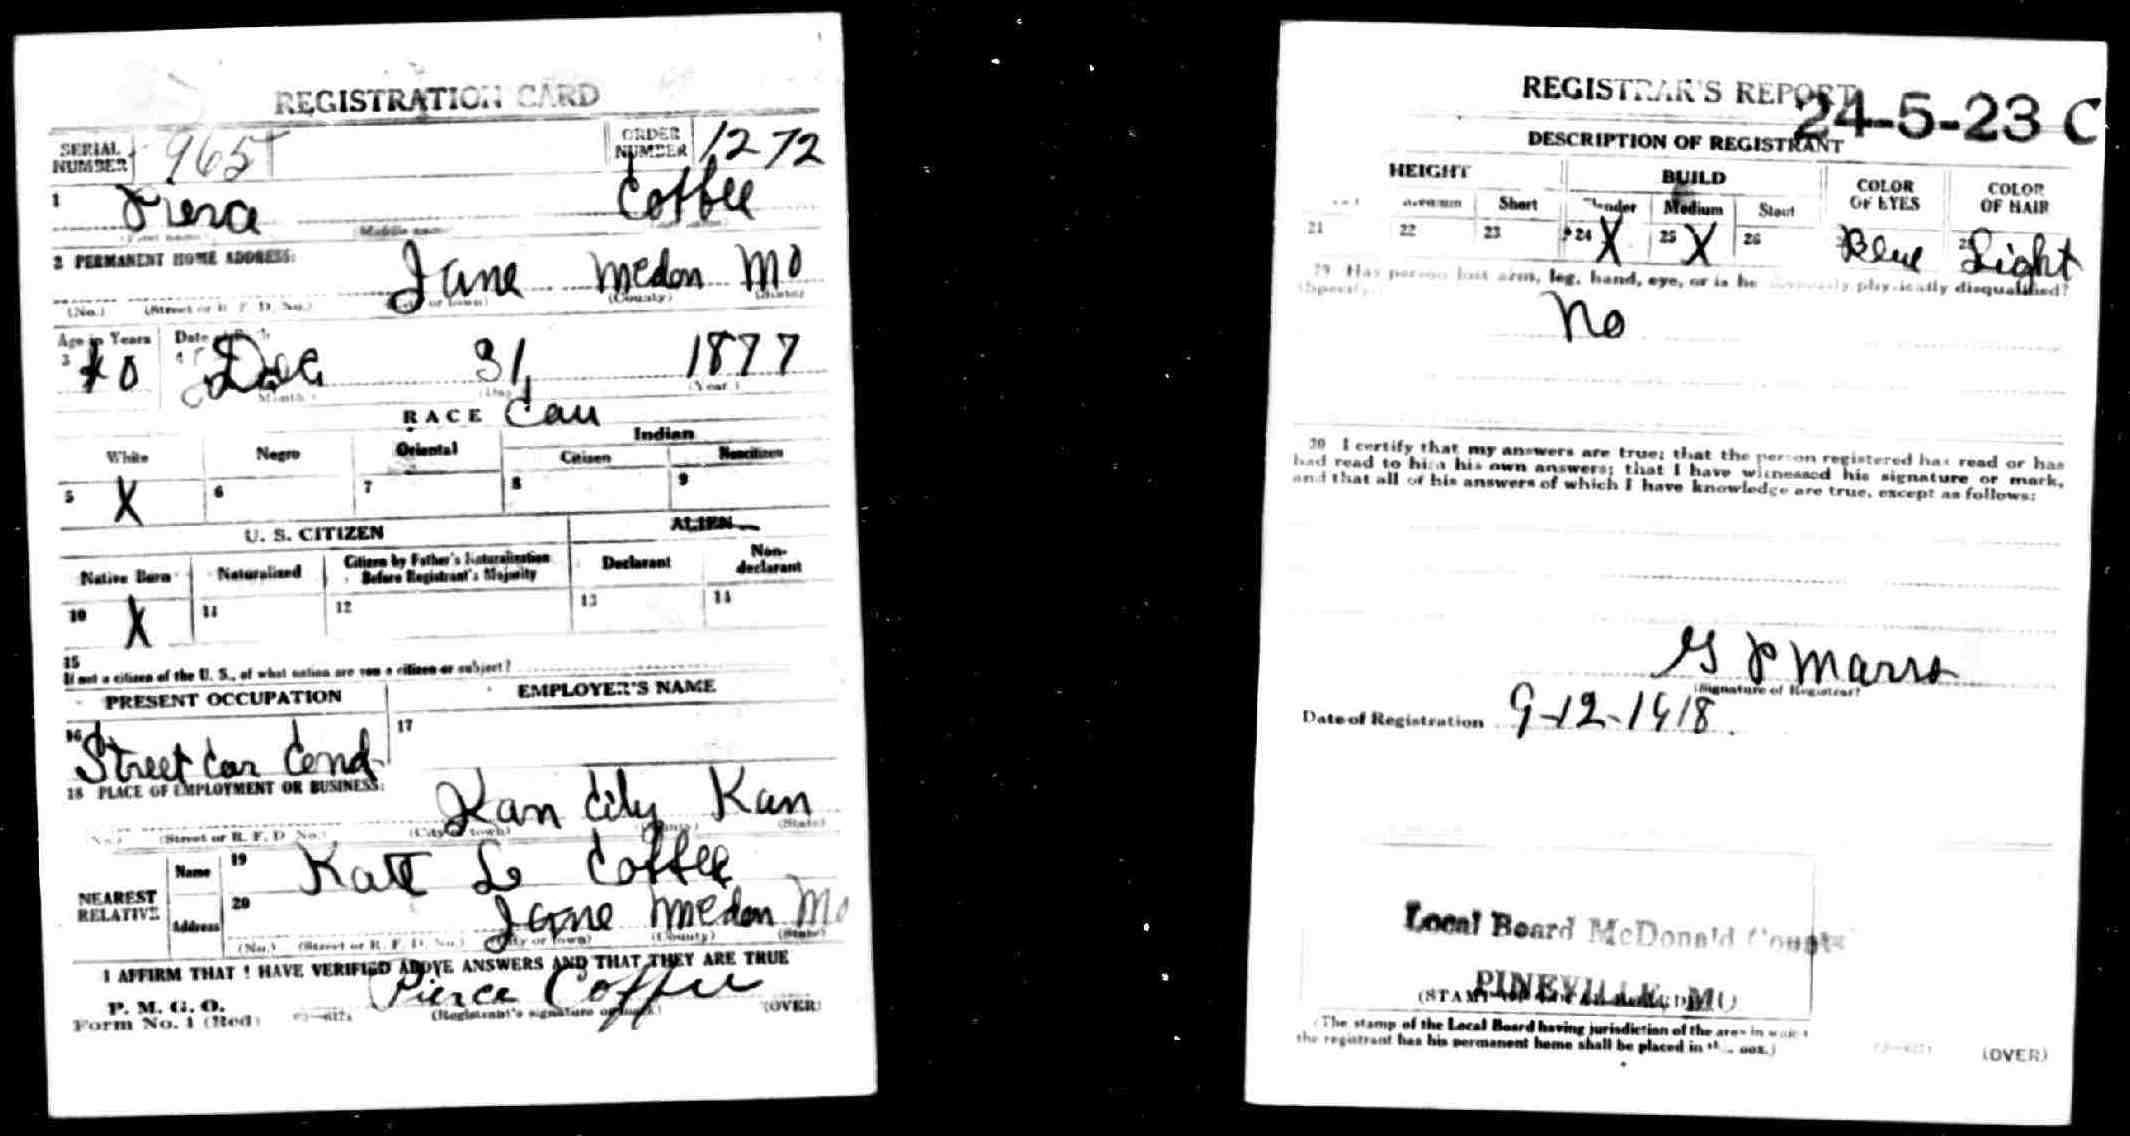 REGISTRATION CARD
SERIAL NUMBER 965 ORDER NUMBER 1272
1 Pierce Coffee
(First name) (Middle name)
2 PERMANENT HOME ADDRESS:
Jane McDon Mo
(No.) (Street or R. F. D. No.) (City or town) (County) (State)
Age in Years Date of Birth
3 40 4 Dec 31 1877
(Month) (Day) (Year)
RACE Cau
White Negro Oriental Indian
Citizen Noncitizen
5 X 6 7 8 9
U. S. CITIZEN ALIEN
Native Born Naturalized Citizen by Father's Naturalization Before Registrant's Majority Declarant Non-declarant
10 X 11 12 13 14
15
If not a citizen of the U. S., of what nation are you a citizen or subject?
PRESENT OCCUPATION EMPLOYER'S NAME
16 Street Car Cond 17
18 PLACE OF EMPLOYMENT OR BUSINESS:
Kan City Kan
(No.) (Street or R. F. D. No.) (City or town) (County) (State)
NEAREST RELATIVE
Name 19 Kate Coffee
Address 20 Jane McDon Mo
(No.) (Street or R. F. D. No.) (City or town) (County) (State)
I AFFIRM THAT I HAVE VERIFIED ABOVE ANSWERS AND THAT THEY ARE TRUE
P. M. G. O.
Form No. 1 (Red) Pierce Coffee (OVER)
(Registrant's signature or mark)
REGISTRAR'S REPORT
24-5-23 C
DESCRIPTION OF REGISTRANT
HEIGHT BUILD COLOR OF EYES COLOR OF HAIR
Medium Short Slender Medium Stout
21 22 23 24 X 25 X 26 Blue 28 Light
29 Has person lost arm, leg, hand, eye, or is he obviously physically disqualified?
(Specify.)
No
30 I certify that my answers are true; that the person registered has read or has
had read to him his own answers; that I have witnessed his signature or mark,
and that all of his answers of which I have knowledge are true, except as follows:
G P Marrs
(Signature of Registrar)
Date of Registration 9-12-1918
Local Board McDonald County
PINEVILLE, MO
(The stamp of the Local Board having jurisdiction of the area in which
the registrant has his permanent home shall be placed in this box.)
(OVER)